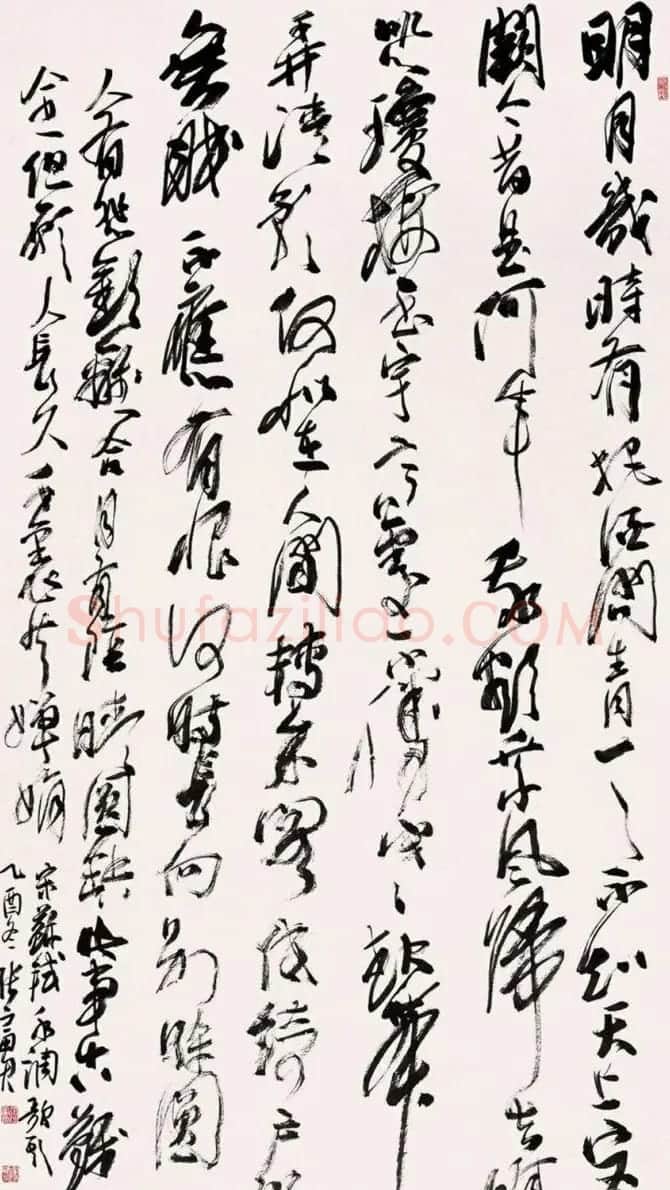 明月幾時有把酒問青天不知天上宫
闕今昔是何年我欲乘风歸去唯
恐瓊樓玉宇高處不勝寒起舞
弄清影何似在人間轉朱閣低綺户
無眠不應有恨何時長向别時圓
人有悲歡離合月有陰晴圓缺此事古難
全但願人長久千里共嬋娟
宋蘇軾水調歌頭
乙酉冬張
Shufaziliao.COM